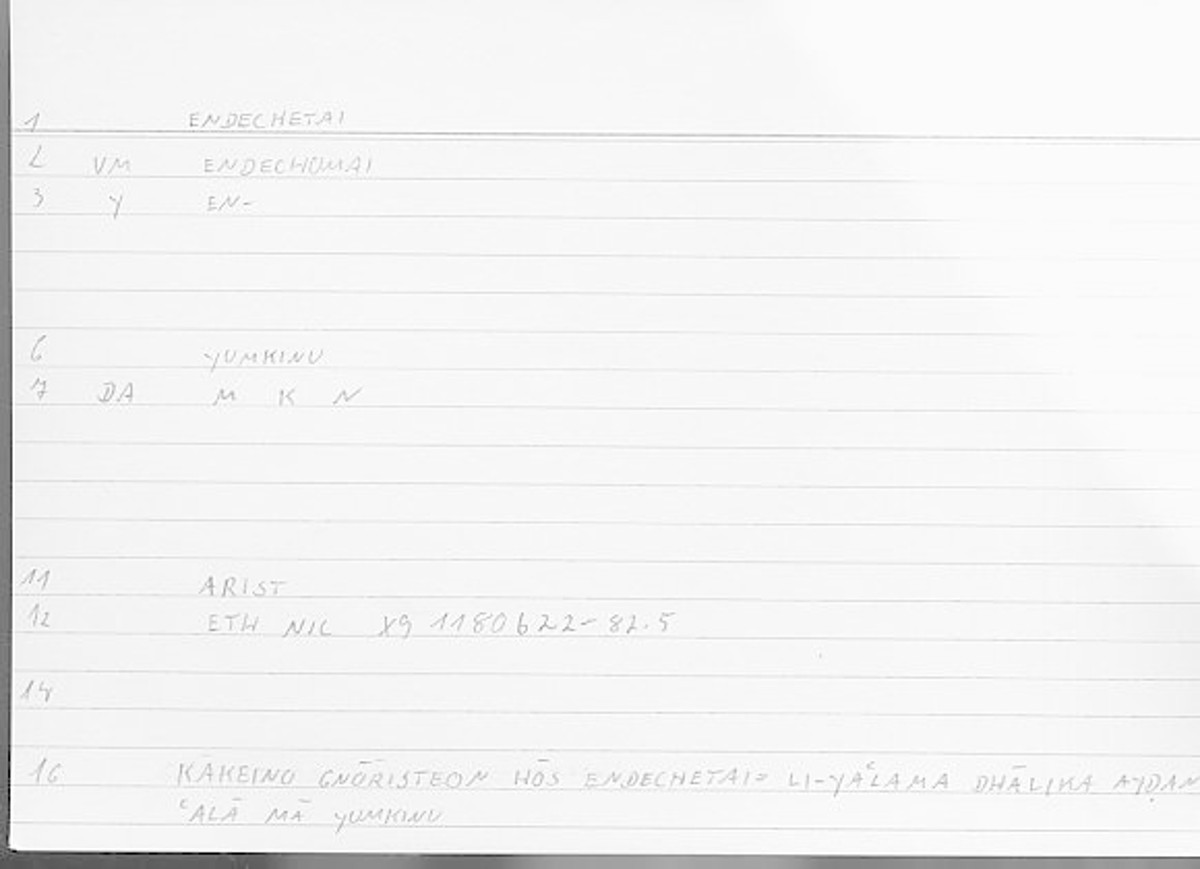 1 ENDECHETAI
2 VM ENDECHOMAI
3 Y EN-
6 YUMKINU
7 DA M K N
11 ARIST
12 ETH NIC X9 1180622-82.5
14
16 KĀKEINO GNŌRISTEON HŌS ENDECHETAI= LI-YAʿLAMA DHĀLIKA AYḌAN
ʿALĀ MĀ YUMKINU